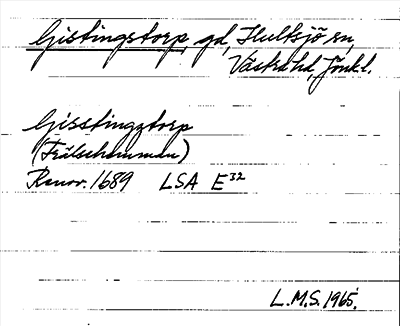 Gistingstorp, gd, Hultsjö sn,
Västra hd, Jönk.l.
Gisstingztorp
(Frälsehemman)
Renov. 1689 LSA E³²
L.M.S. 1965.